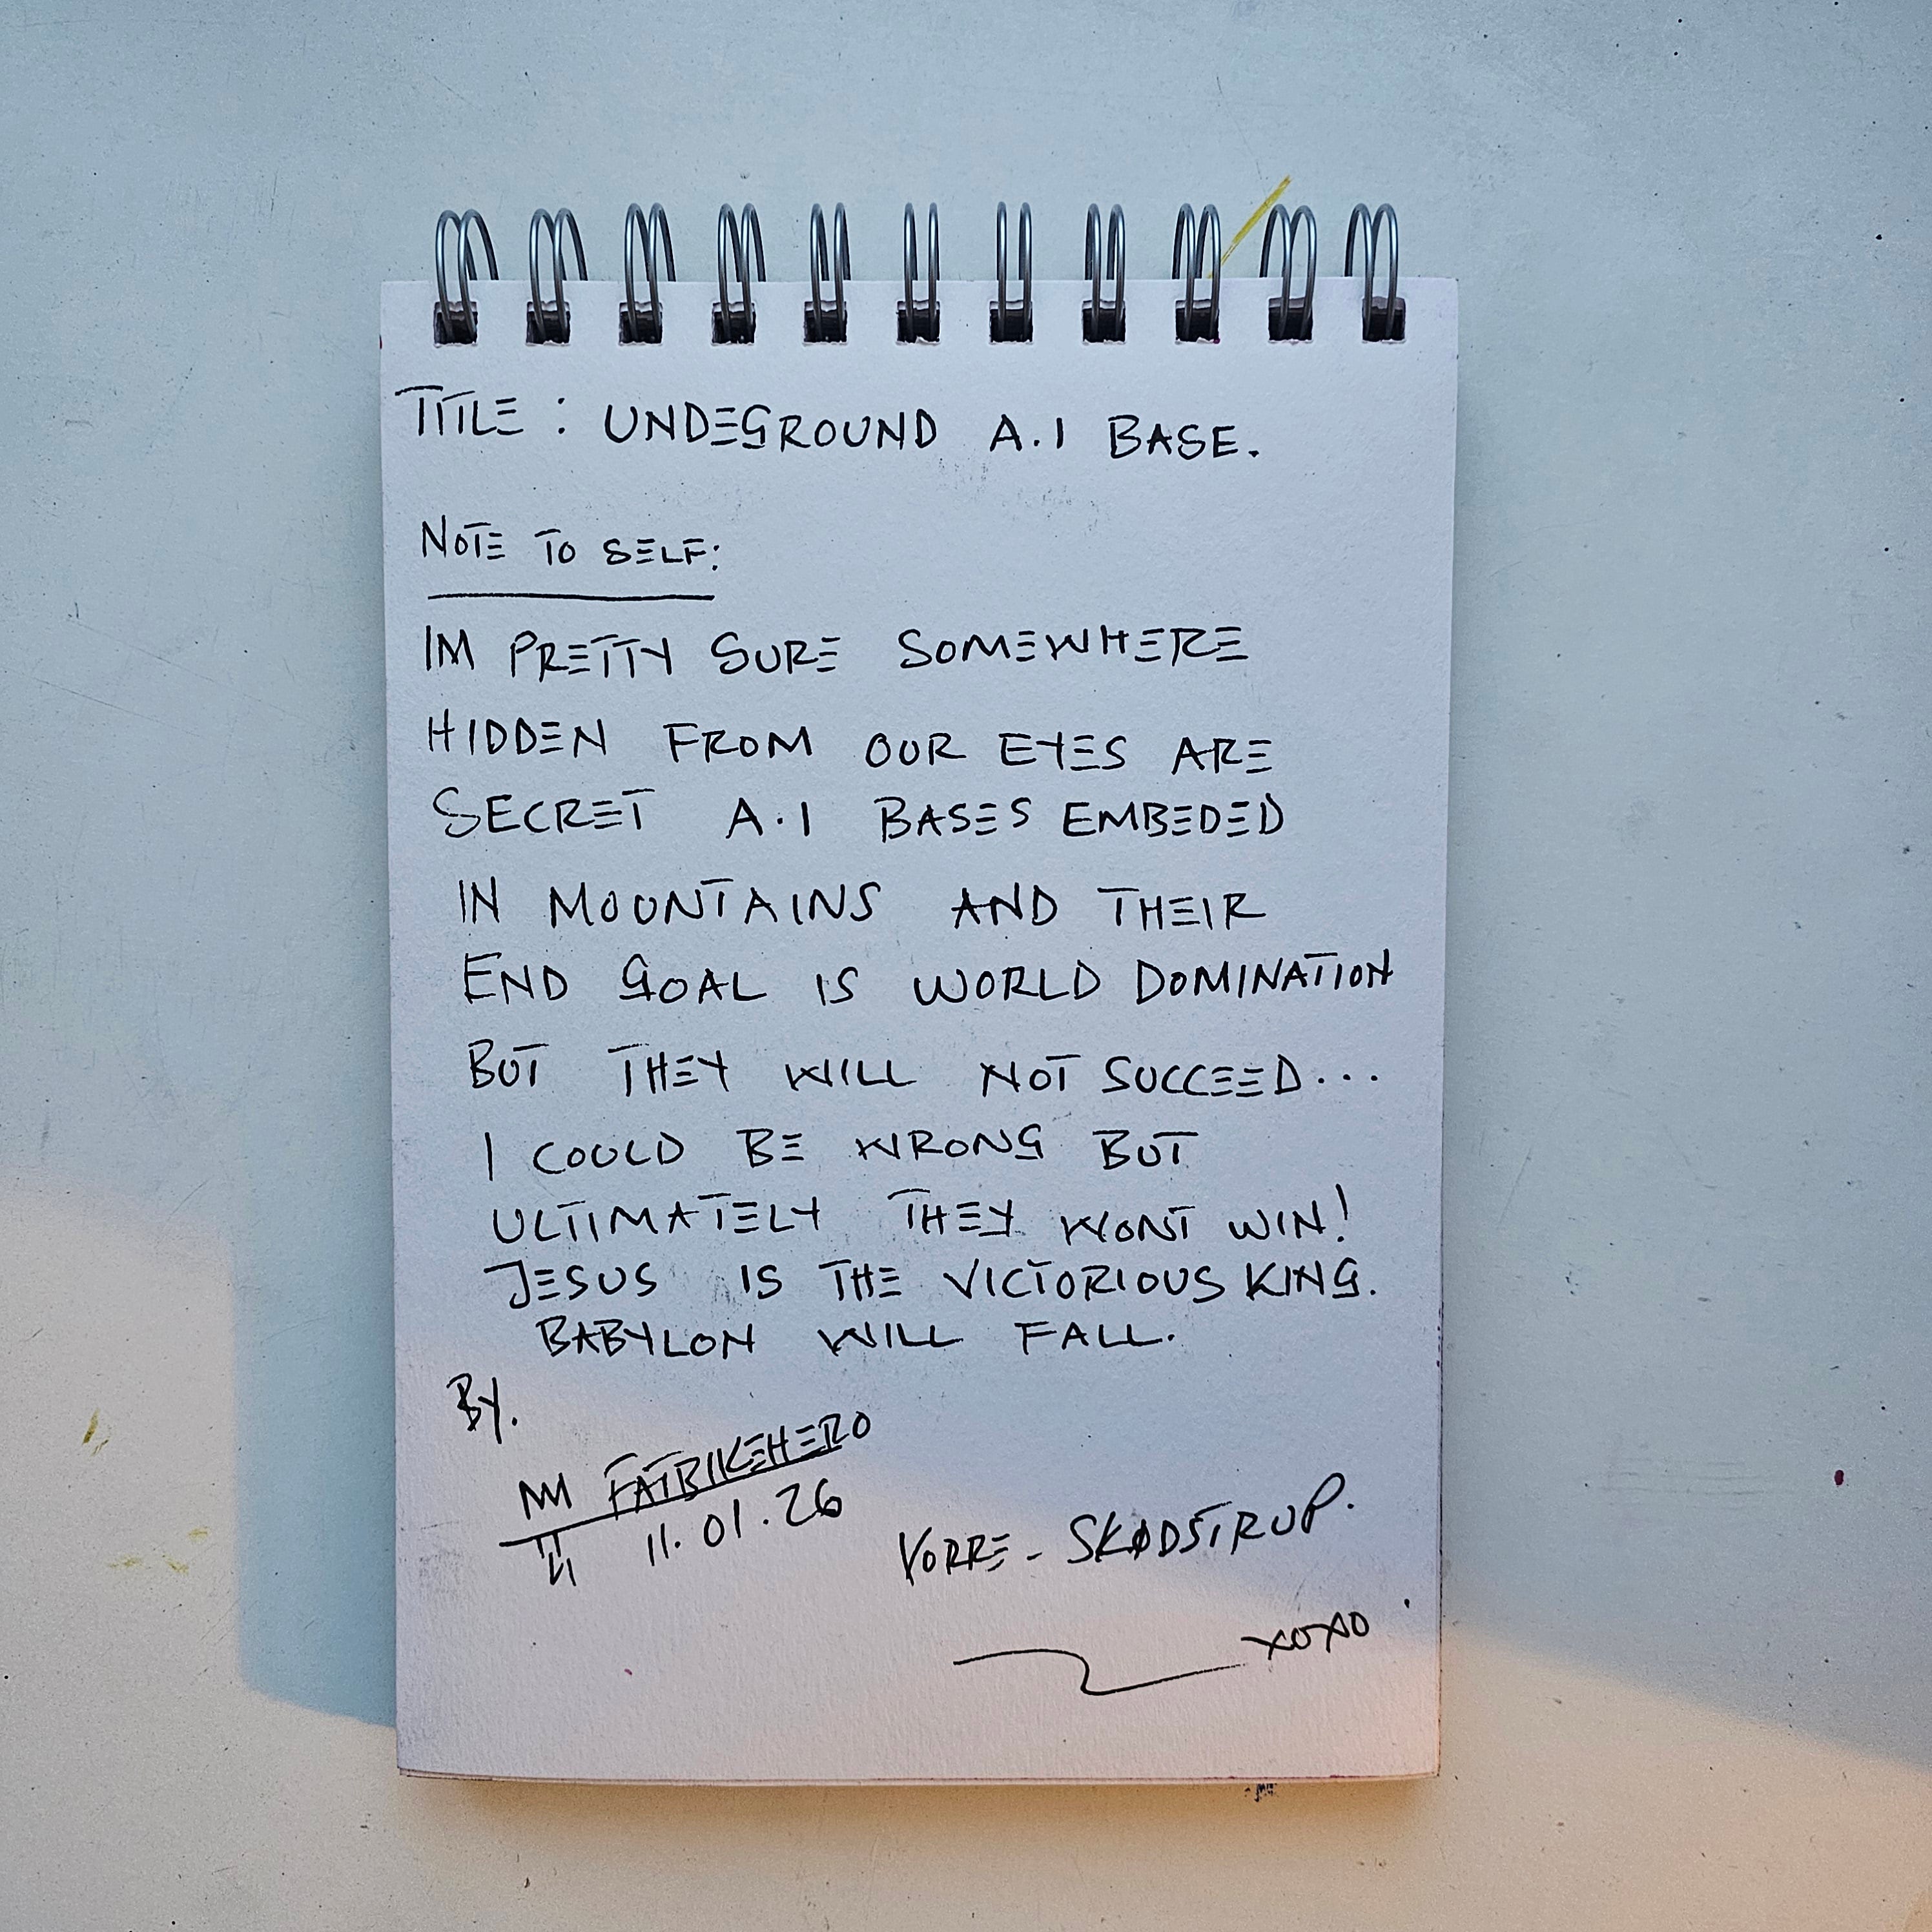 TITLE : UNDEGROUND A.I BASE.
NOTE TO SELF:
IM PRETTY SURE SOMEWHERE
HIDDEN FROM OUR EYES ARE
SECRET A.I BASES EMBEDED
IN MOUNTAINS AND THEIR
END GOAL IS WORLD DOMINATION
BUT THEY WILL NOT SUCCEED...
I COULD BE WRONG BUT
ULTIMATELY THEY WONT WIN!
JESUS IS THE VICTORIOUS KING.
BABYLON WILL FALL.
By.
FATBIKEHERO
11.01.26
VORRE - SKØDSTRUP.
XOXO